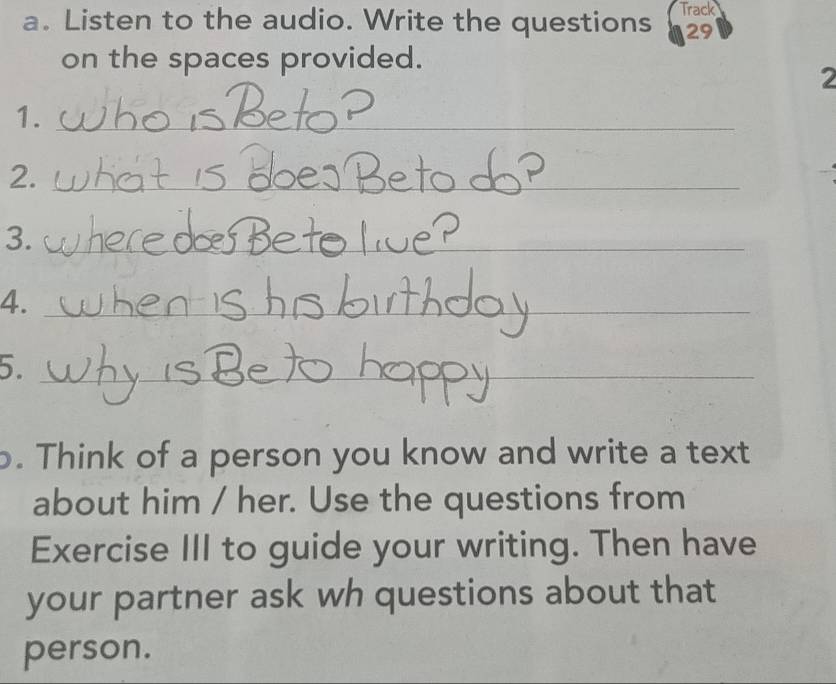 a. Listen to the audio. Write the questions Track 29
on the spaces provided.
2
1. Who is Beto?
2. what is does Beto do?
3. where does Beto live?
4. when is his birthday
5. why is Beto happy
b. Think of a person you know and write a text
about him / her. Use the questions from
Exercise III to guide your writing. Then have
your partner ask wh questions about that
person.